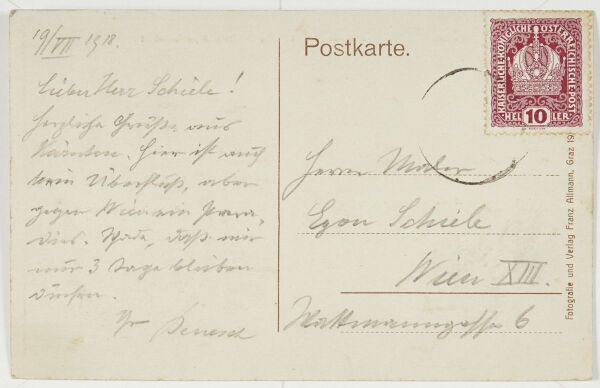 19/VII 1918.
Lieber Herr Schiele!
Herzliche Grüße aus
Kärnten. Hier ist auch
kein Überfluß, aber
gegen Wien ein Para-
dies. Schade, daß wir
nur 3 Tage bleiben
dürfen.
Ihr Benesch
Postkarte.
KAISERLICHE KÖNIGLICHE ÖSTERREICHISCHE POST
HELLER
10
Herrn Maler
Egon Schiele
Wien XIII.
Wattmanngasse 6
Fotografie und Verlag Franz Allmann, Graz 19